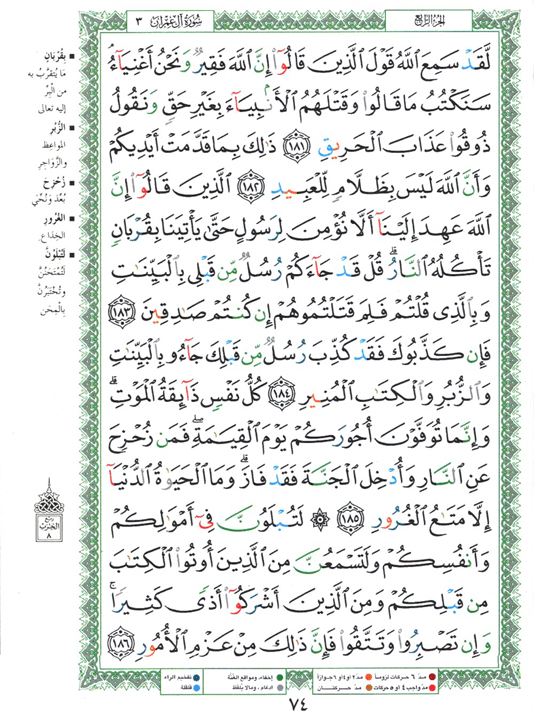 الجزء الرابع
سورة آل عمران ٣
لَّقَدْ سَمِعَ ٱللَّهُ قَوْلَ ٱلَّذِينَ قَالُوٓا۟ إِنَّ ٱللَّهَ فَقِيرٌ وَنَحْنُ أَغْنِيَآءُ
سَنَكْتُبُ مَا قَالُوا۟ وَقَتْلَهُمُ ٱلْأَنۢبِيَآءَ بِغَيْرِ حَقٍّ وَنَقُولُ
ذُوقُوا۟ عَذَابَ ٱلْحَرِيقِ ١٨١ ذَٰلِكَ بِمَا قَدَّمَتْ أَيْدِيكُمْ
وَأَنَّ ٱللَّهَ لَيْسَ بِظَلَّامٍ لِّلْعَبِيدِ ١٨٢ ٱلَّذِينَ قَالُوٓا۟ إِنَّ
ٱللَّهَ عَهِدَ إِلَيْنَآ أَلَّا نُؤْمِنَ لِرَسُولٍ حَتَّىٰ يَأْتِيَنَا بِقُرْبَانٍ
تَأْكُلُهُ ٱلنَّارُ ۗ قُلْ قَدْ جَآءَكُمْ رُسُلٌ مِّن قَبْلِى بِٱلْبَيِّنَٰتِ
وَبِٱلَّذِى قُلْتُمْ فَلِمَ قَتَلْتُمُوهُمْ إِن كُنتُمْ صَٰدِقِينَ ١٨٣
فَإِن كَذَّبُوكَ فَقَدْ كُذِّبَ رُسُلٌ مِّن قَبْلِكَ جَآءُو بِٱلْبَيِّنَٰتِ
وَٱلزُّبُرِ وَٱلْكِتَٰبِ ٱلْمُنِيرِ ١٨٤ كُلُّ نَفْسٍ ذَآئِقَةُ ٱلْمَوْتِ ۗ
وَإِنَّمَا تُوَفَّوْنَ أُجُورَكُمْ يَوْمَ ٱلْقِيَٰمَةِ ۖ فَمَن زُحْزِحَ
عَنِ ٱلنَّارِ وَأُدْخِلَ ٱلْجَنَّةَ فَقَدْ فَازَ ۗ وَمَا ٱلْحَيَوٰةُ ٱلدُّنْيَآ
إِلَّا مَتَٰعُ ٱلْغُرُورِ ١٨٥ ۞ لَتُبْلَوُنَّ فِىٓ أَمْوَٰلِكُمْ
وَأَنفُسِكُمْ وَلَتَسْمَعُنَّ مِنَ ٱلَّذِينَ أُوتُوا۟ ٱلْكِتَٰبَ
مِن قَبْلِكُمْ وَمِنَ ٱلَّذِينَ أَشْرَكُوٓا۟ أَذًى كَثِيرًا ۚ
وَإِن تَصْبِرُوا۟ وَتَتَّقُوا۟ فَإِنَّ ذَٰلِكَ مِنْ عَزْمِ ٱلْأُمُورِ ١٨٦
بِقُرْبَانٍ
ما يُتقرَّبُ به
من البِرِّ
إليه تعالى
الزُّبُرِ
المواعِظ
والزَّواجِرِ
زُحْزِحَ
بُعِّدَ ونُحِّيَ
الغُرُورِ
الخِداعِ
لَتُبْلَوُنَّ
لَتُمْتَحَنُنَّ
وتُخْتَبَرُنَّ
بالمِحَن
ربع
الحزب
٨
مدّ ٦ حركات لزوماً
مدّ ٢ أو ٤ أو ٦ جوازاً
إخفاء، ومواقع الغُنَّة
تفخيم الراء
مدّ واجب ٤ أو ٥ حركات
مدّ حركتان
ادغام، وما لا يُلفظ
قلقلة
٧٤